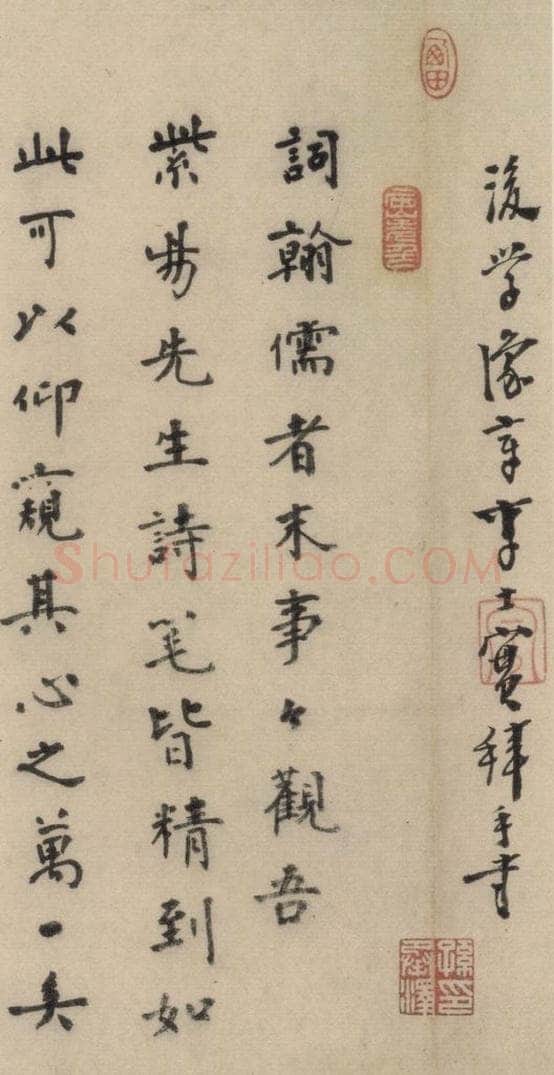 後学豫章李士實拜手書
詞翰儒者末事々觀吾
紫昜先生詩笔皆精到如
此可以仰窺其心之萬一矣
Shufaziliao.COM